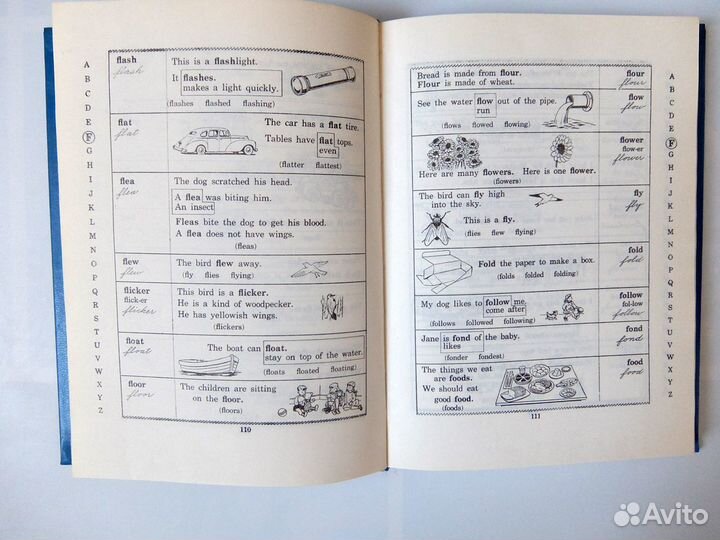 A
B
C
D
E
F
G
H
I
J
K
L
M
N
O
P
Q
R
S
T
U
V
W
X
Y
Z
flash
flash
This is a flashlight.
It flashes.
makes a light quickly.
(flashes flashed flashing)
flat
flat
The car has a flat tire.
Tables have flat tops.
even
(flatter flattest)
flea
flea
The dog scratched his head.
A flea was biting him.
An insect
Fleas bite the dog to get his blood.
A flea does not have wings.
(fleas)
flew
flew
The bird flew away.
(fly flies flying)
flicker
flick-er
flicker
This bird is a flicker.
He is a kind of woodpecker.
He has yellowish wings.
(flickers)
float
float
The boat can float.
stay on top of the water.
(floats floated floating)
floor
floor
The children are sitting
on the floor.
(floors)
110
Bread is made from flour.
Flour is made of wheat.
flour
flour
See the water flow out of the pipe.
run
(flows flowed flowing)
flow
flow
Here are many flowers. Here is one flower.
(flowers)
flower
flow-er
flower
The bird can fly high
into the sky.
This is a fly.
(flies flew flying)
fly
fly
Fold the paper to make a box.
(folds folded folding)
fold
fold
My dog likes to follow me.
come after
(follows followed following)
follow
fol-low
follow
Jane is fond of the baby.
likes
(fonder fondest)
fond
fond
The things we
eat are foods.
We should eat
good food.
(foods)
food
food
111
A
B
C
D
E
F
G
H
I
J
K
L
M
N
O
P
Q
R
S
T
U
V
W
X
Y
Z
Avito